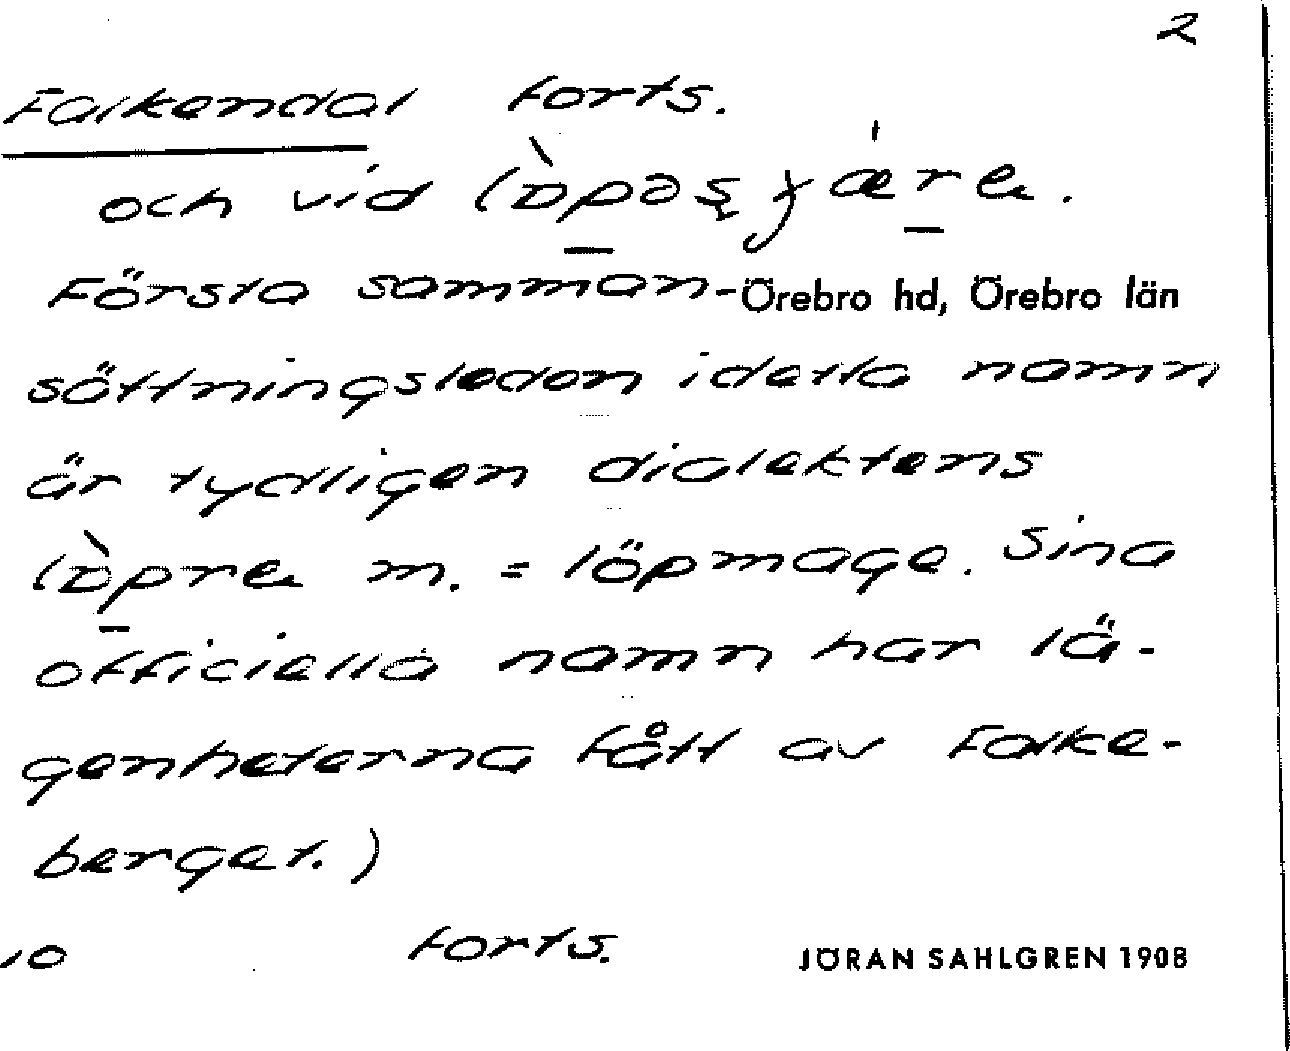 2
Falkendal forts.
och vid
Första samman-
Örebro hd, Örebro län
sättningsleden i detta namn
är tydligen dialektens
m. = löpmage. Sina
officiella namn har lä-
genheterna fått av Falke-
berget.)
10 forts.
JÖRAN SAHLGREN 1908